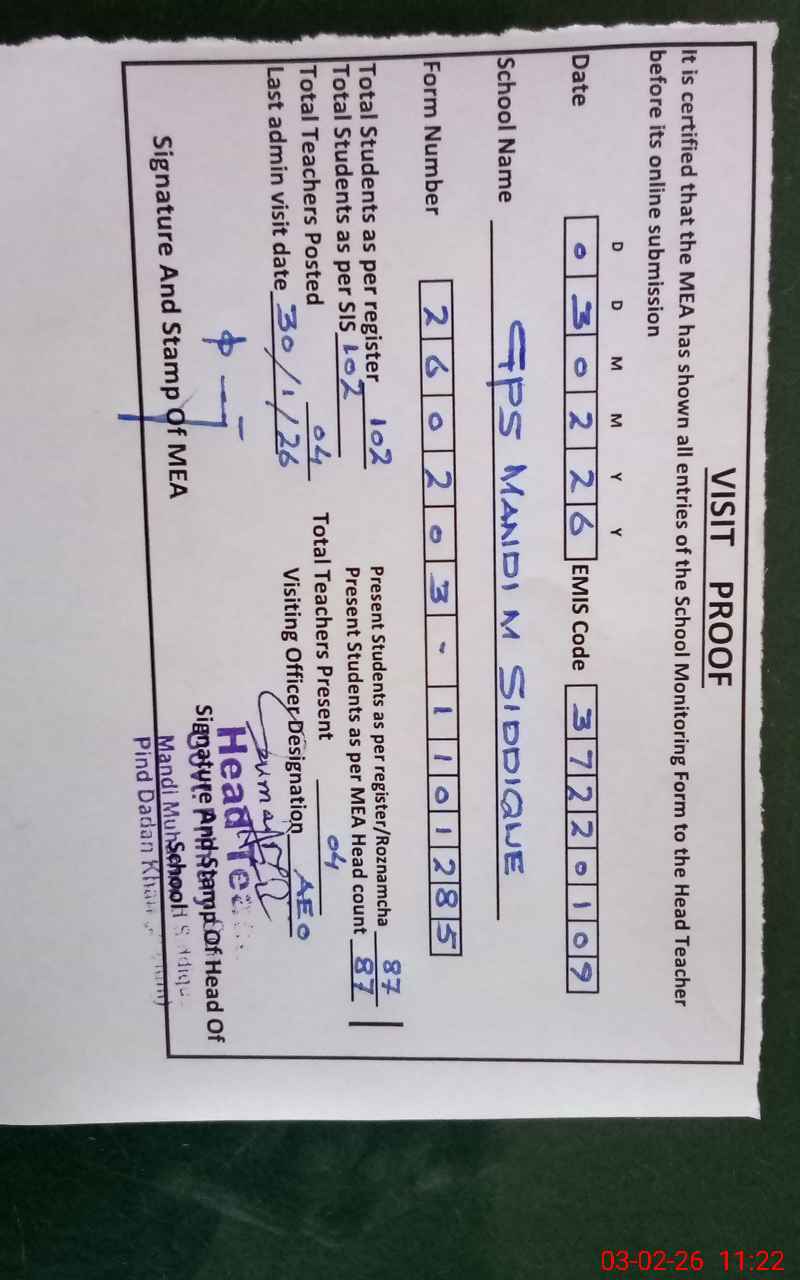 VISIT PROOF
It is certified that the MEA has shown all entries of the School Monitoring Form to the Head Teacher
before its online submission
D D M M Y Y
Date 0 3 0 2 2 6 EMIS Code 3 7 2 2 0 1 0 9
School Name GPS MANDI M SIDDIQUE
Form Number 2 6 0 2 0 3 - 1 1 0 1 2 8 5
Total Students as per register 102 Present Students as per register/Roznamcha 87
Total Students as per SIS 102 Present Students as per MEA Head count 87
Total Teachers Posted 04 Total Teachers Present 04
Last admin visit date 30/1/26 Visiting Officer Designation AEO
Head
Signature And Stamp Of MEA Signature And Stamp Of Head Of
School
Mandi
Pind Dadan
03-02-26 11:22